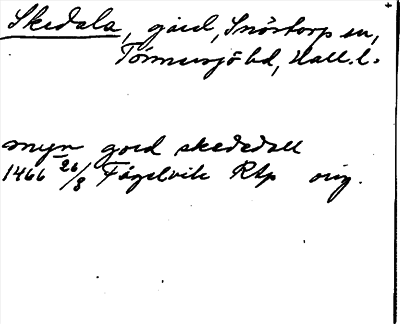 Skedala, gård, Snöstorp sn,
Tönnersjö hd, Hall. l.
myn gord skededall
1466 26/8 Fågelvik Rtp orig.